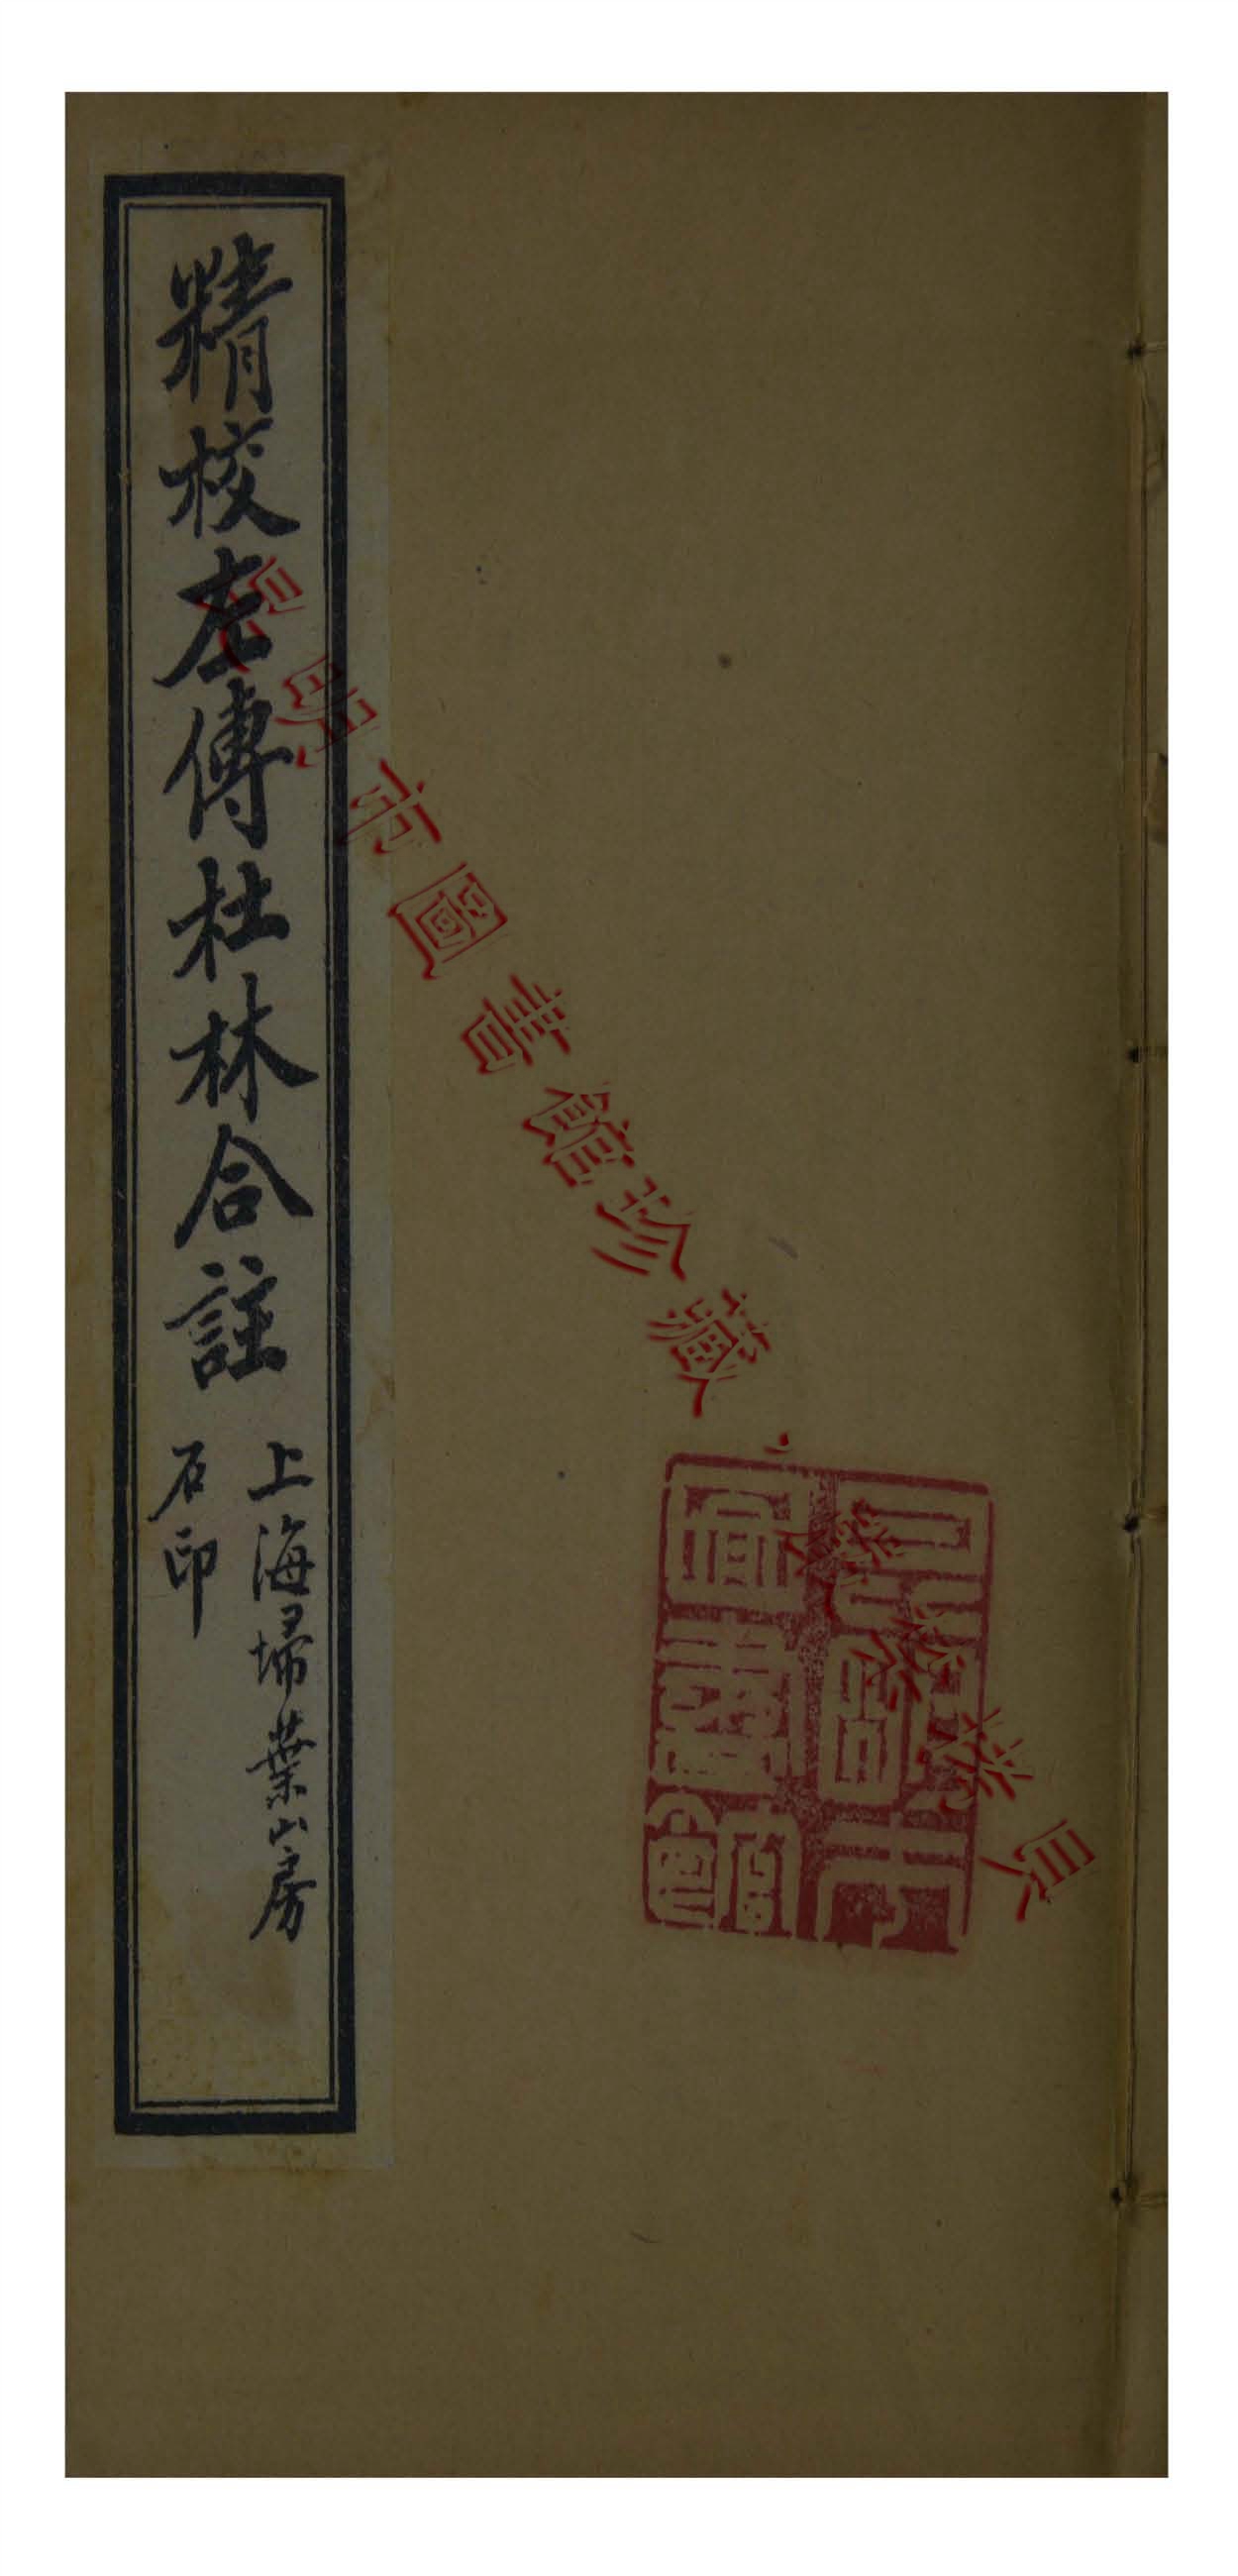 精校左傳杜林合註
上海埽葉山房
石印
昆明市圖書館珍藏，
昆明市
圖書館